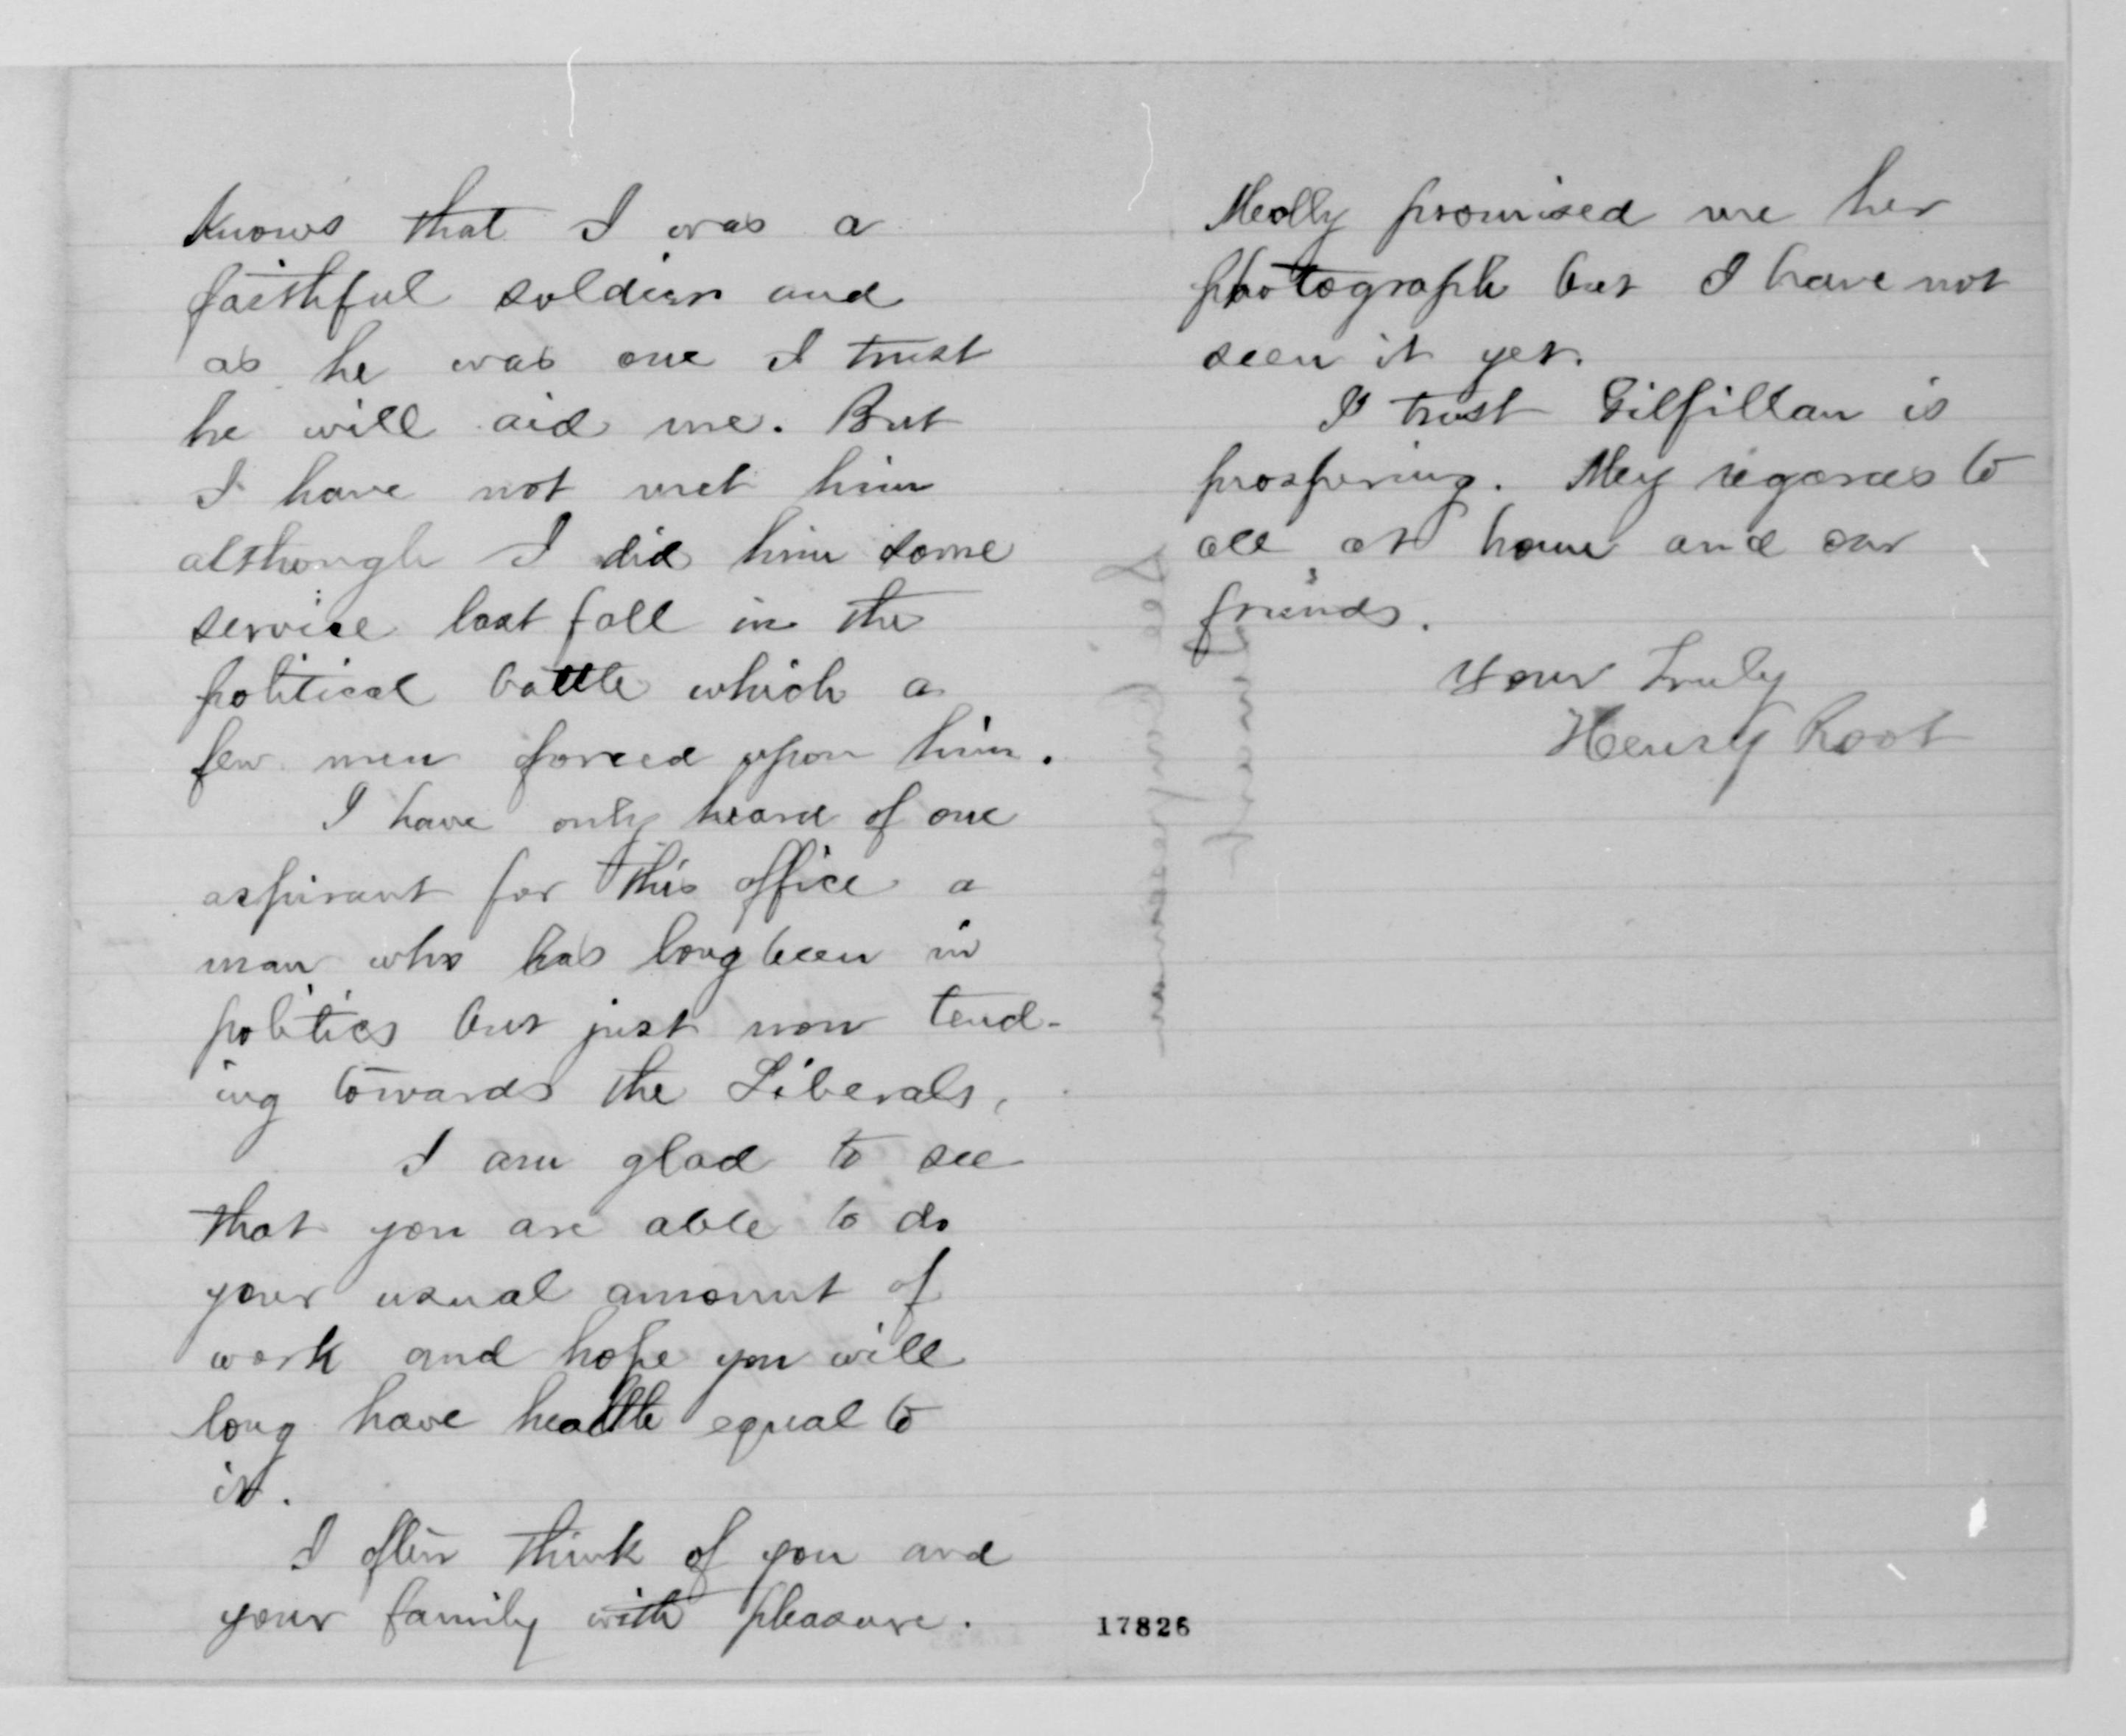 knows that I was a
faithful soldier and
as he was one I trust
he will aid me. But
I have not met him
although I did him some
service last fall in the
political battle which a
few men forced upon him.
I have only heard of one
aspirant for this office a
man who has long been in
politics but just now tend-
ing towards the Liberals.
I am glad to see
that you are able to do
your usual amount of
work and hope you will
long have health equal to
it.
I often think of you and
your family with pleasure.
Molly promised me her
photograph but I have not
seen it yet.
I trust Gilfillan is
prospering. My regards to
all at home and our
friends.
Your Truly
Henry Root
17826